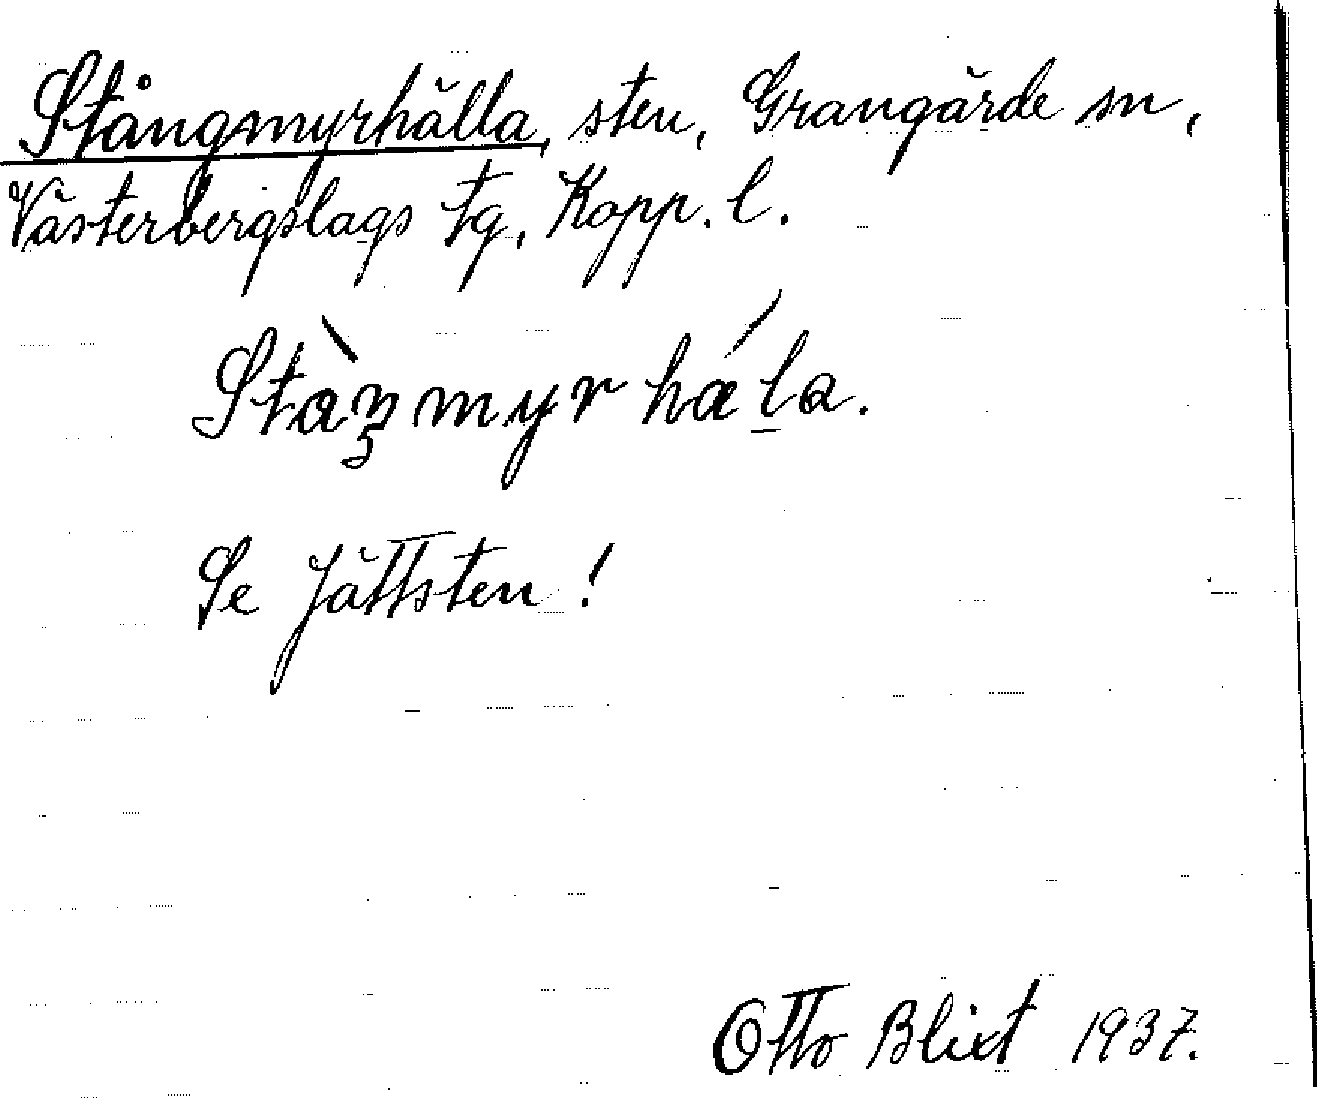 Stångmyrhälla, sten, Grangärde sn,
Västerbergslags tg, Kopp. l.
Se Jättsten!
Otto Blixt 1937.